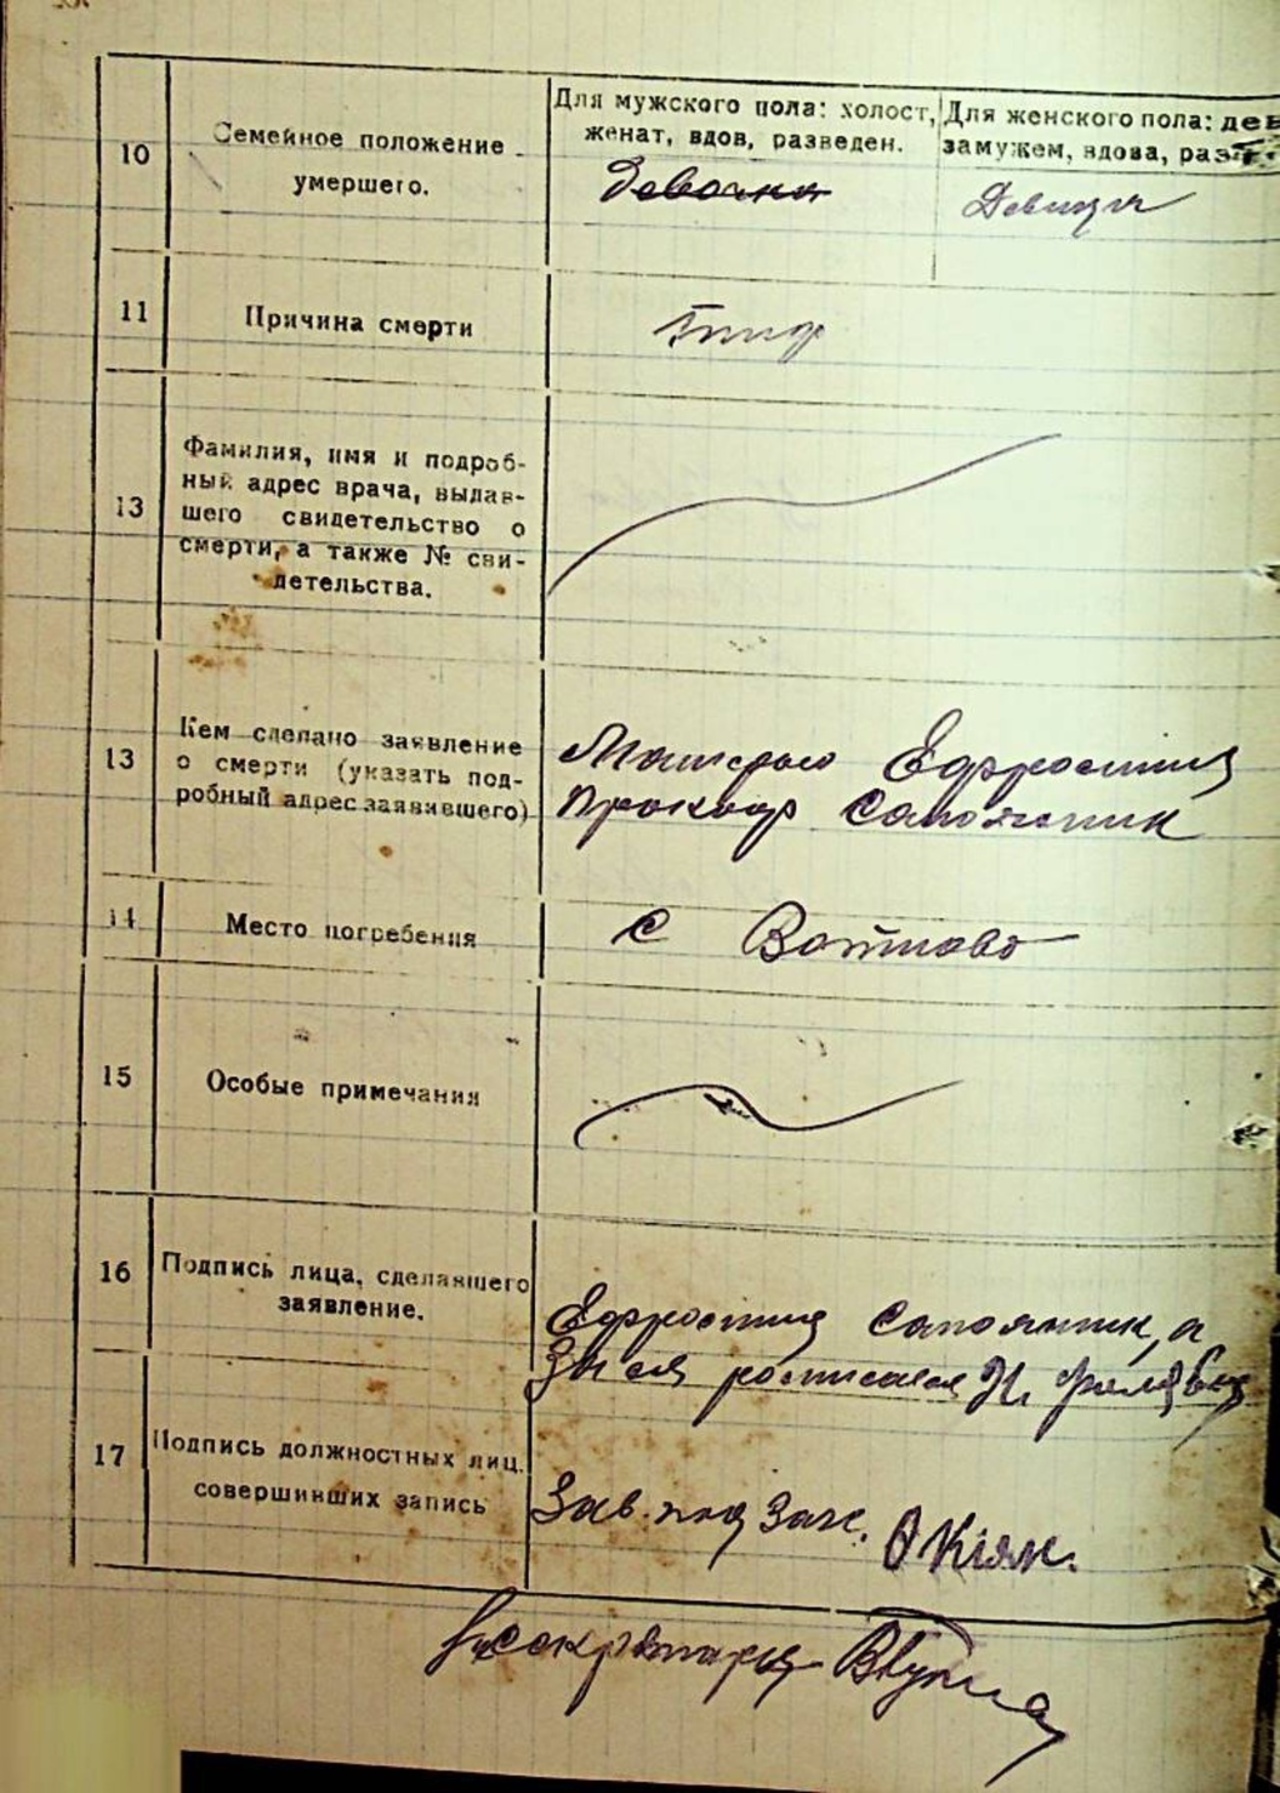 10
Семейное положение
умершего.
Для мужского пола: холост,
женат, вдов, разведен.
Для женского пола: дев
замужем, вдова, раз
Девочка
Девица
11
Причина смерти
Тиф
13
Фамилия, имя и подроб-
ный адрес врача, выдав-
шего свидетельство о
смерти, а также № сви-
детельства.
13
Кем сделано заявление
о смерти (указать под-
робный адрес заявившего)
Матерью Ефросиния
Сапожник
14
Место погребения
с
15
Особые примечания
16
Подпись лица, сделавшего
заявление.
Ефросиния Сапожник, а
за ея росписался И.
17
Подпись должностных лиц,
совершивших запись
Зав. под Заг.
секретарь